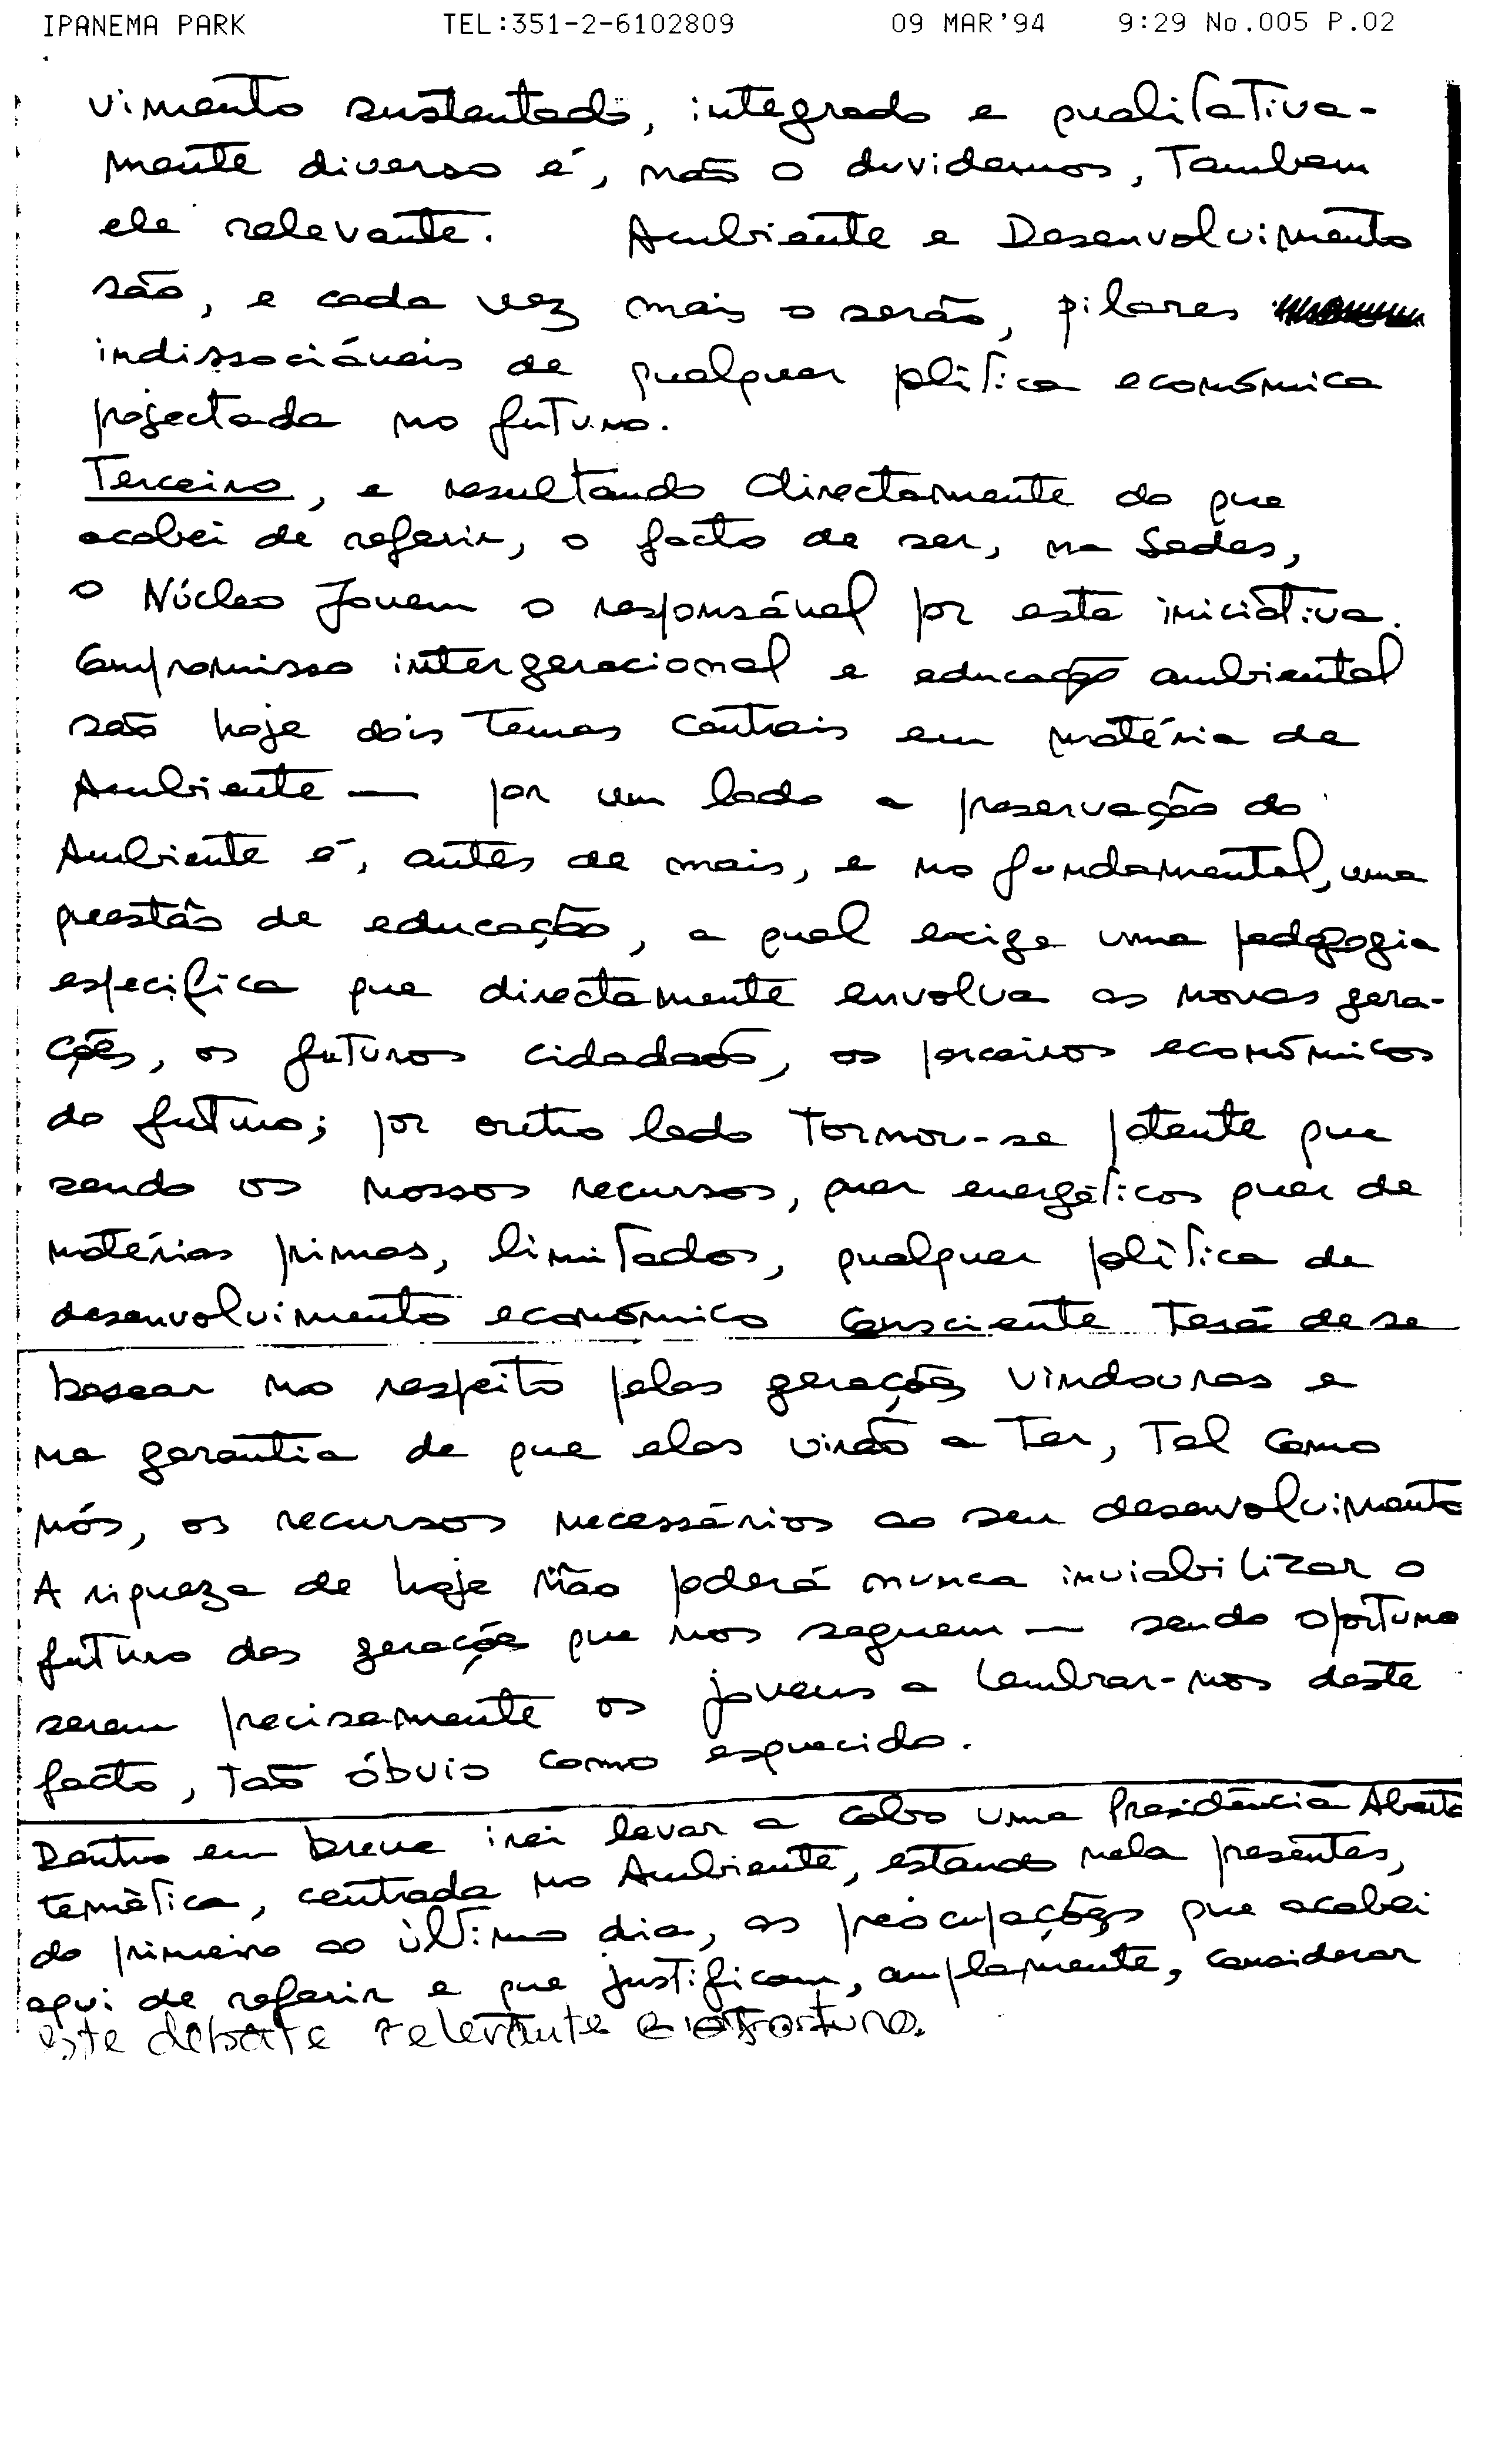 IPANEMA PARK TEL:351-2-6102809 09 MAR'94 9:29 No.005 P.02
vimento sustentado, integrado e qualitativa-
mente diverso é, não o duvidemos, Tambem
ele relevante. Ambiente e Desenvolvimento
são, e cada vez mais o serão, pilares
indissociáveis de qualquer política económica
projectada no futuro.
Terceiro, e resultando directamente do que
acabei de referir, o facto de ser, na Sedes,
o Núcleo Jovem o responsável por esta iniciativa.
Compromisso intergeracional e educação ambiental
são hoje dois Temas centrais em matéria de
Ambiente — por um lado a preservação do
Ambiente é, antes de mais, e no fundamental, uma
questão de educação, a qual exige uma pedagogia
especifica que directamente envolva as novas gera-
ções, os futuros cidadãos, os parceiros económicos
do futuro; por outro lado Tornou-se patente que
sendo os nossos recursos, quer energéticos quer de
matérias primas, limitados, qualquer política de
desenvolvimento económico consciente Terá de se
basear no respeito pelas gerações vindouras e
na garantia de que elas virão a Ter, Tal como
nós, os recursos necessários ao seu desenvolvimento
A riqueza de hoje não poderá nunca inviabilizar o
futuro das gerações que nos seguem — sendo oportuno
serem precisamente os jovens a lembrar-nos deste
facto, Tão óbvio como esquecido.
Dentro em breve irei levar a cabo uma Presidência Aberta
temática, centrada no Ambiente, estando nela presentes,
do primeiro ao último dia, as preocupações que acabei
aqui de referir e que justificam, amplamente, considerar
este debate relevante e oportuno.